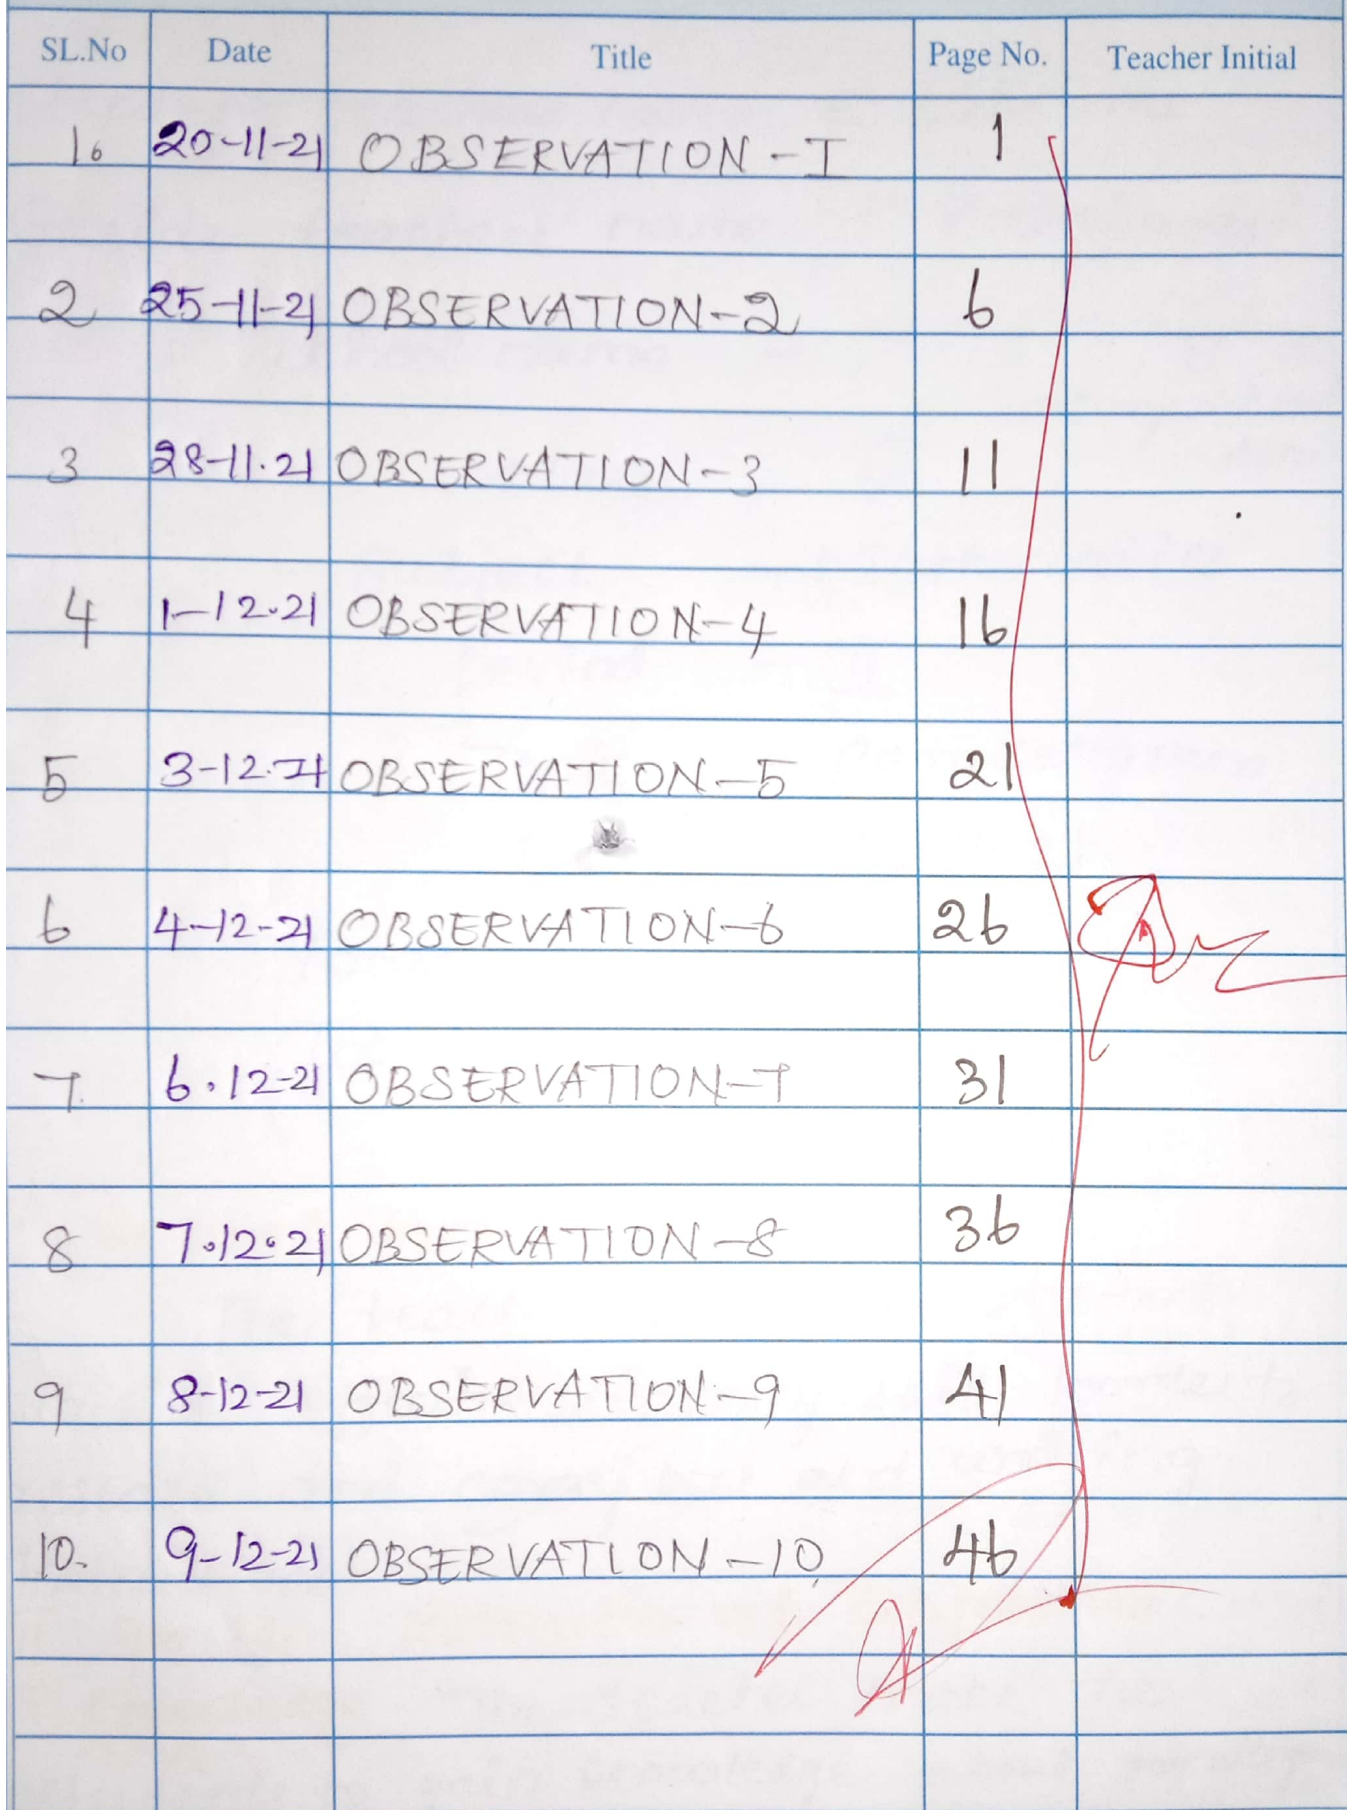 SL.No Date Title Page No. Teacher Initial
1. 20-11-21 OBSERVATION - I 1
2 25-11-21 OBSERVATION-2 6
3 28-11.21 OBSERVATION-3 11
4 1-12.21 OBSERVATION-4 16
5 3-12.21 OBSERVATION-5 21
6 4-12-21 OBSERVATION-6 26
7. 6.12-21 OBSERVATION-7 31
8 7.12.21 OBSERVATION-8 36
9 8-12-21 OBSERVATION-9 41
10. 9-12-21 OBSERVATION-10. 46